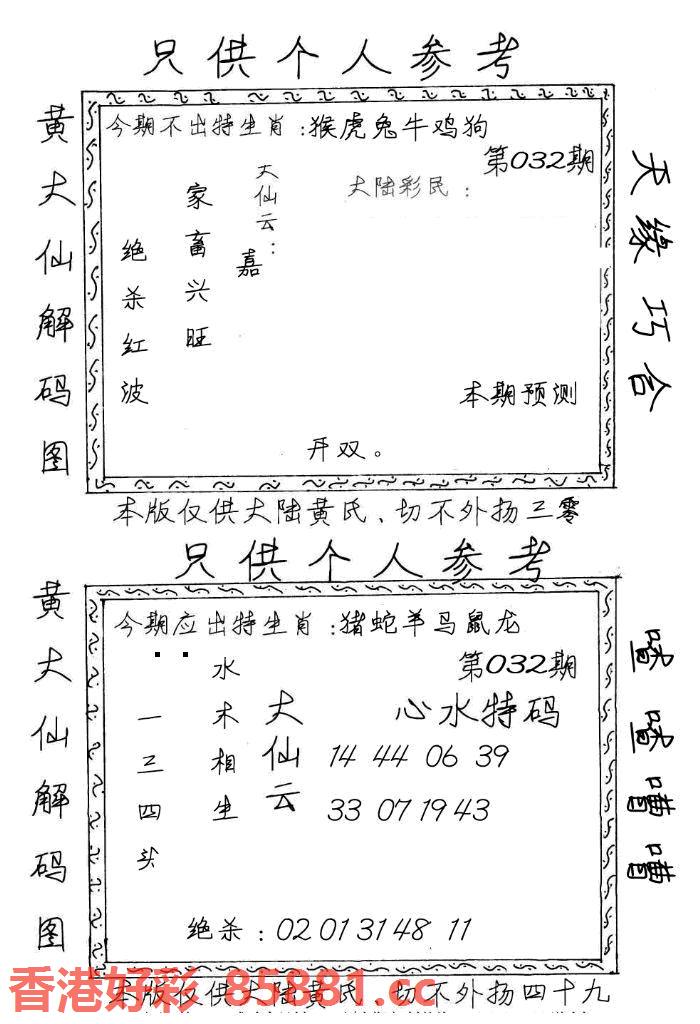 只供个人参考
黄大仙解码图
今期不出特生肖：猴虎兔牛鸡狗
第032期
大陆彩民：
大仙云：
嘉
家畜兴旺
绝杀红波
本期预测
开双。
天缘巧合
本版仅供大陆黄氏、切不外扬三零
只供个人参考
黄大仙解码图
今期应出特生肖：猪蛇羊马鼠龙
第032期
心水特码
14 44 06 39
33 07 19 43
大仙云
水木相生
一三四头
绝杀：02 01 31 48 11
本版仅供大陆黄氏、切不外扬四十九
香港好彩 85881.cc